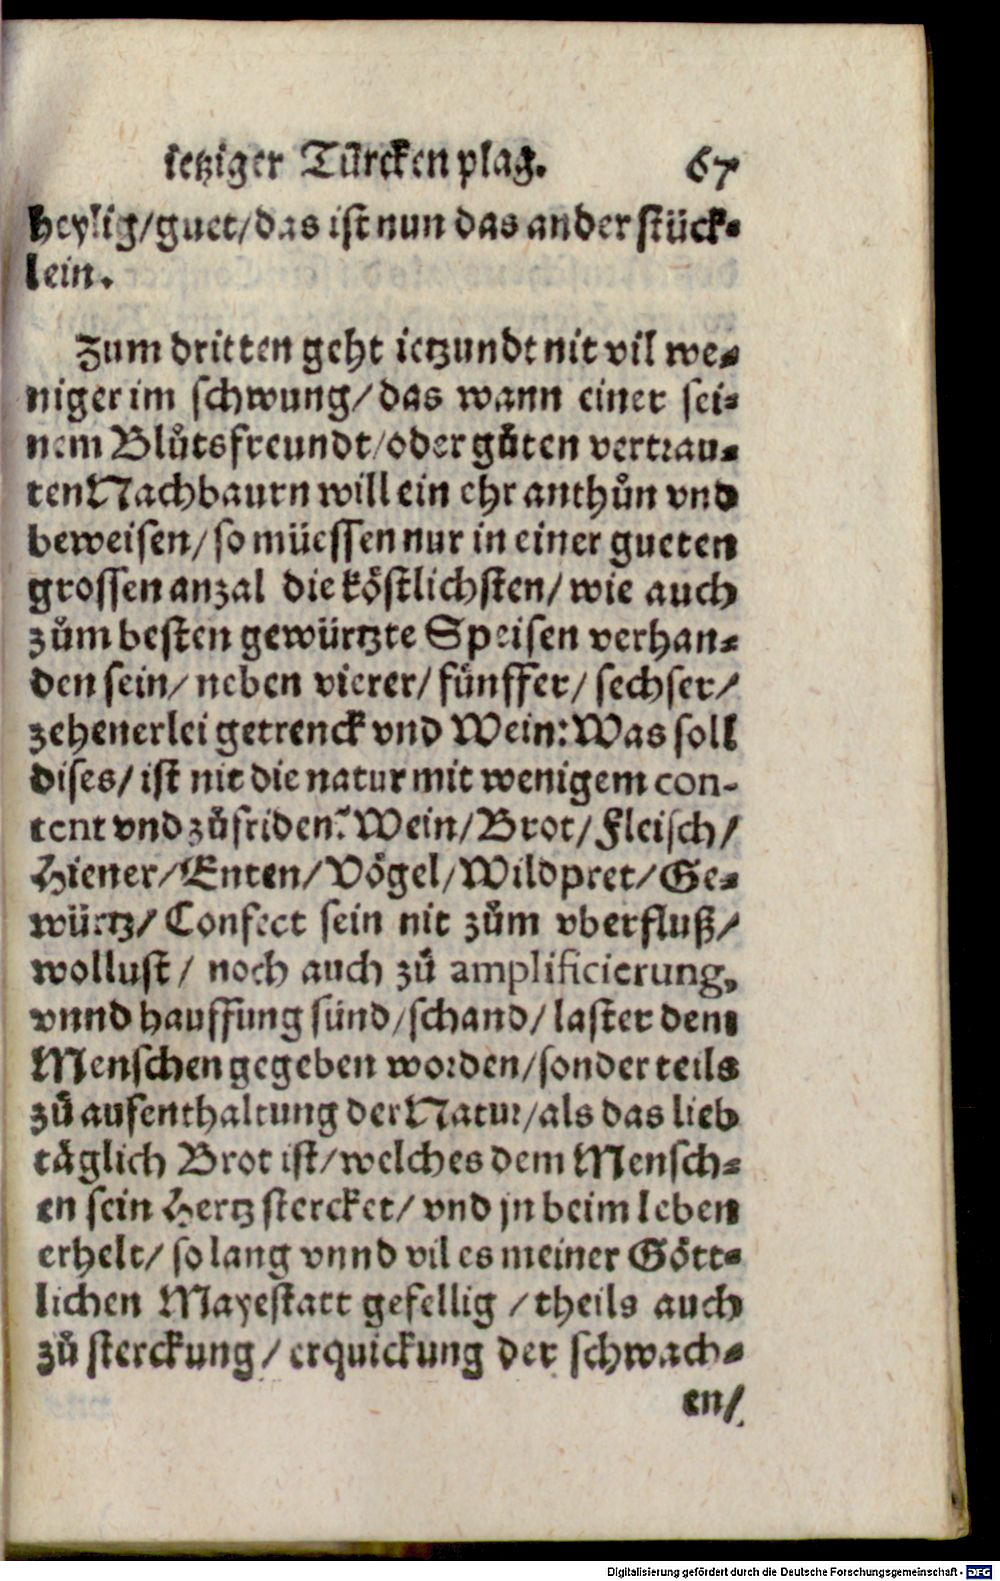 ietziger Türcken plag. 67
heylig/guet/das ist nun das ander stück-
lein.
Zum dritten geht ietzundt nit vil we-
niger im schwung/das wann einer sei-
nem Blůtsfreundt/oder gůten vertrau-
ten Nachbaurn will ein ehr anthůn vnd
beweisen/so müessen nur in einer gueten
grossen anzal die köstlichsten/wie auch
zům besten gewürtzte Speisen verhan-
den sein/neben vierer/fünffer/sechser/
zehenerlei getrenck vnd Wein: Was soll
dises/ist nit die natur mit wenigem con-
tent vnd zůfriden? Wein/Brot/Fleisch/
Hiener/Enten/Vögel/Wildpret/Ge-
würtz/Confect sein nit zům vberfluß/
wollust/noch auch zů amplificierung,
vnnd hauffung sünd/schand/laster dem
Menschen gegeben worden/sonder teils
zů aufenthaltung der Natur/als das lieb
täglich Brot ist/welches dem Mensch-
en sein Hertz stercket/vnd jn beim leben
erhelt/so lang vnnd vil es meiner Gött-
lichen Mayestatt gefellig/theils auch
zů sterckung/erquickung der schwach-
en/
Digitalisierung gefördert durch die Deutsche Forschungsgemeinschaft - DFG